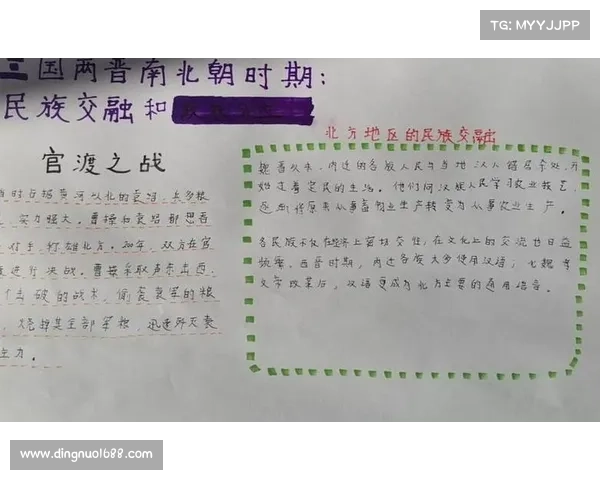 TG: MYYJJPP
三国两晋南北朝时期:
民族交融和
北方地区的民族交融
官渡之战
魏晋以来,内迁的各族人民与当地汉人错居杂处,开
始过着定民的生活。他们向汉族人民学习农业技艺,
逐渐将原来从事畜牧业生产转变为从事农业生产。
各民族不仅在经济上密切交往,在文化上的交流也日益
频繁。西晋时期,内迁各族大多使用汉语;北魏孝
文帝改革后,汉语更成为北方主要的通用语言。
时占据黄河以北的袁绍,兵多粮
,实力强大。曹操和袁绍都想吞
对手,称雄北方。200年,双方在官
进行决战。曹操采取声东击西,
击破的战术,偷袭袁军的粮
,烧掉其全部军粮,迅速歼灭袁
主力。
www.dingnuo1688.com